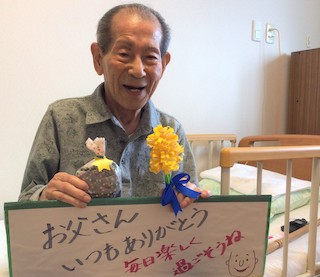 お父さん
いつもありがとう
毎日楽しく
過ごそうね